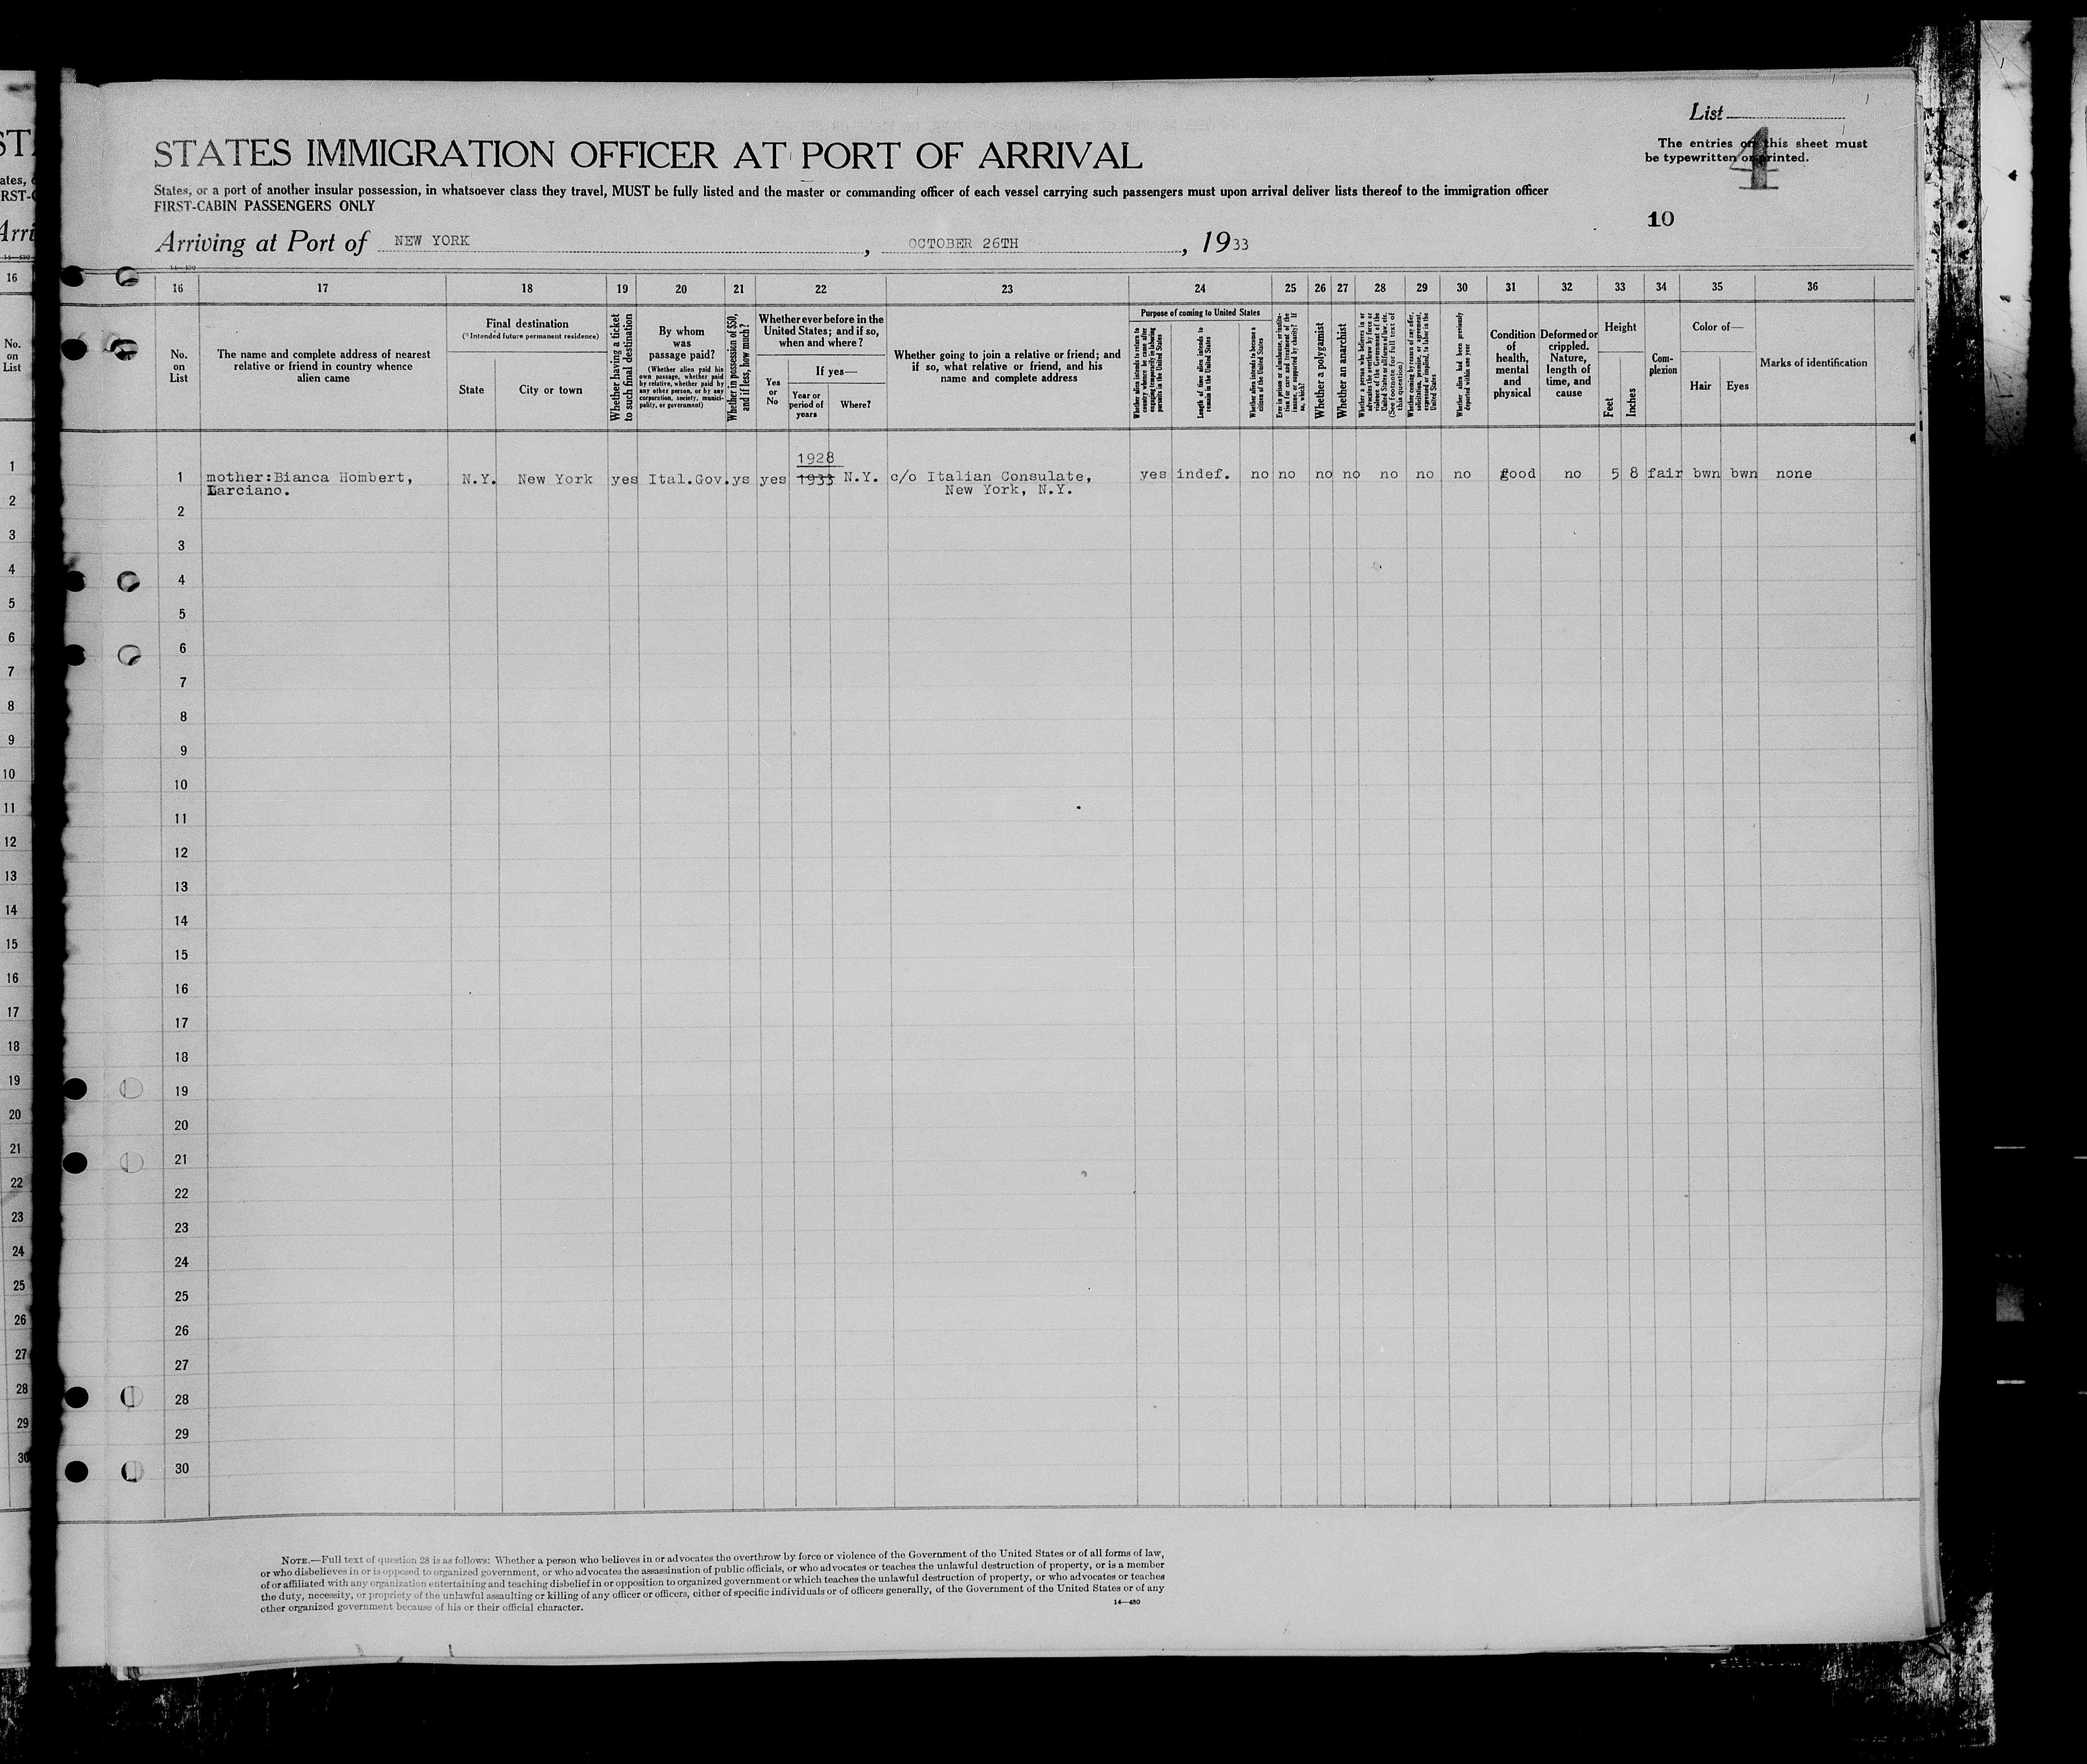 List
STATES IMMIGRATION OFFICER AT PORT OF ARRIVAL
The entries on this sheet must
be typewritten or printed.
4
States, or a port of another insular possession, in whatsoever class they travel, MUST be fully listed and the master or commanding officer of each vessel carrying such passengers must upon arrival deliver lists thereof to the immigration officer
FIRST-CABIN PASSENGERS ONLY
10
Arriving at Port of NEW YORK, OCTOBER 26TH, 1933
14-430
16 17 18 19 20 21 22 23 24 25 26 27 28 29 30 31 32 33 34 35 36
No. on List
The name and complete address of nearest
relative or friend in country whence
alien came
Final destination
(*Intended future permanent residence)
State
City or town
Whether having a ticket
to such final destination
By whom
was
passage paid?
(Whether alien paid his
own passage, whether paid
by relative, whether paid by
any other person, or by any
corporation, society, munici-
pality, or government)
Whether in possession of $50,
and if less, how much?
Whether ever before in the
United States; and if so,
when and where?
Yes
or
No
If yes—
Year or
period of
years
Where?
Whether going to join a relative or friend; and
if so, what relative or friend, and his
name and complete address
Purpose of coming to United States
Whether alien intends to return to
country whence he came after
engaging temporarily in laboring
pursuits in the United States
Length of time alien intends to
remain in the United States
Whether alien intends to become a
citizen of the United States
Ever in prison or almshouse, or institu-
tion for care and treatment of the
insane, or supported by charity? If
so, which?
Whether a polygamist
Whether an anarchist
Whether a person who believes in or
advocates the overthrow by force or
violence of the Government of the
United States or all forms of law, etc.
(See footnote for full text of
this question)
Whether coming by reason of any offer,
solicitation, promise, or agreement,
expressed or implied, to labor in the
United States
Whether alien had been previously
deported within one year
Condition
of
health,
mental
and
physical
Deformed or
crippled.
Nature,
length of
time, and
cause
Height
Feet
Inches
Com-
plexion
Color of—
Hair
Eyes
Marks of identification
1928
1 mother:Bianca Hombert, N.Y. New York yes Ital.Gov. ys yes 1933 N.Y. c/o Italian Consulate, yes indef. no no no no no no no good no 5 8 fair bwn bwn none
Larciano. New York, N.Y.
2
3
4
5
6
7
8
9
10
11
12
13
14
15
16
17
18
19
20
21
22
23
24
25
26
27
28
29
30
NOTE.—Full text of question 28 is as follows: Whether a person who believes in or advocates the overthrow by force or violence of the Government of the United States or of all forms of law,
or who disbelieves in or is opposed to organized government, or who advocates the assassination of public officials, or who advocates or teaches the unlawful destruction of property, or is a member
of or affiliated with any organization entertaining and teaching disbelief in or opposition to organized government or which teaches the unlawful destruction of property, or who advocates or teaches
the duty, necessity, or propriety of the unlawful assaulting or killing of any officer or officers, either of specific individuals or of officers generally, of the Government of the United States or of any
other organized government because of his or their official character.
14—430